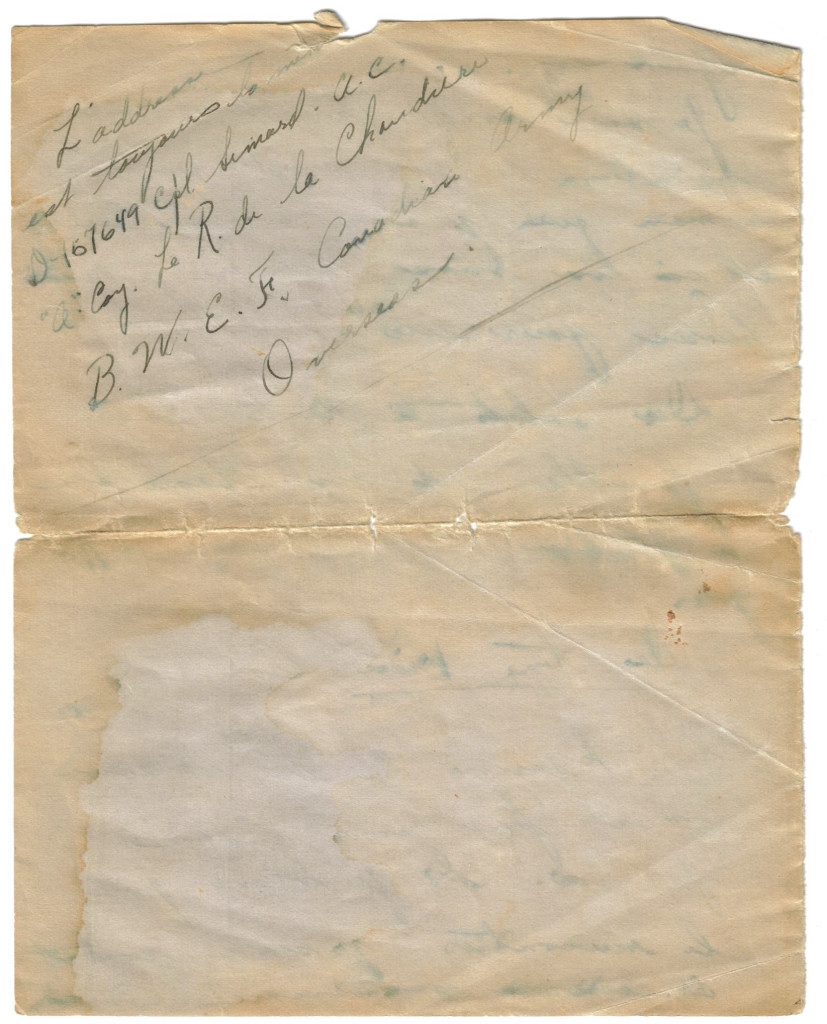 L'addresse
est toujours la même
D-157649 Cpl Simard. A.C.
"A" Coy. Le R. de la Chaudière
B. W. E. F. Canadian Army
Overseas.